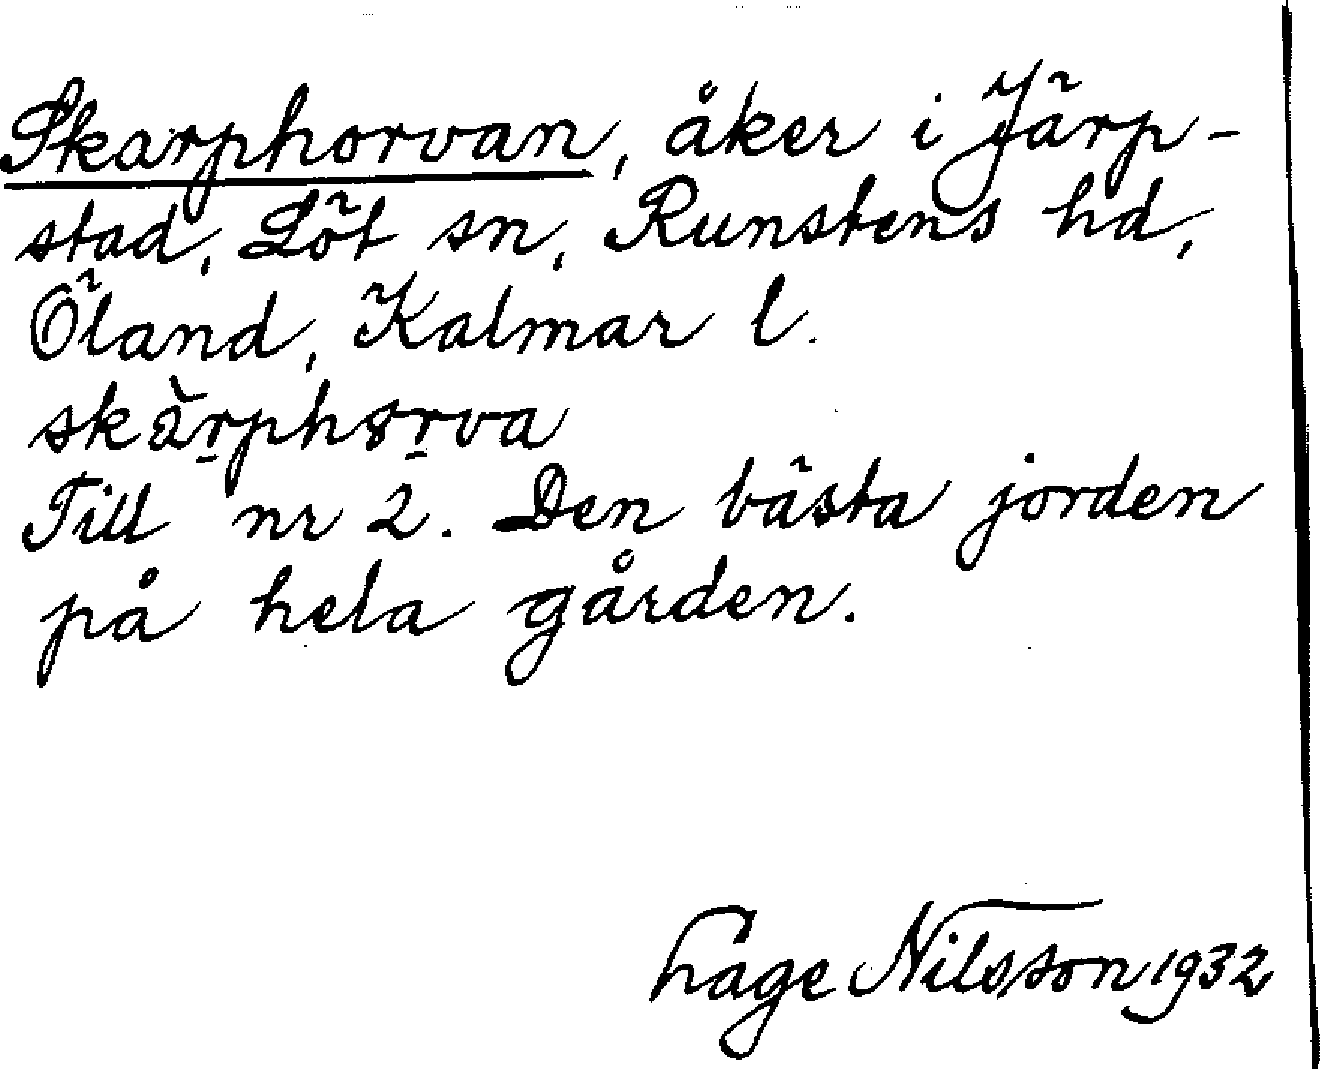 Skarphorvan, åker i Järp-
stad, Löt sn, Runstens hd,
Öland, Kalmar l.
skàr̠phɔr̠va
Till nr 2. Den bästa jorden
på hela gården.
Hage Nilsson 1932